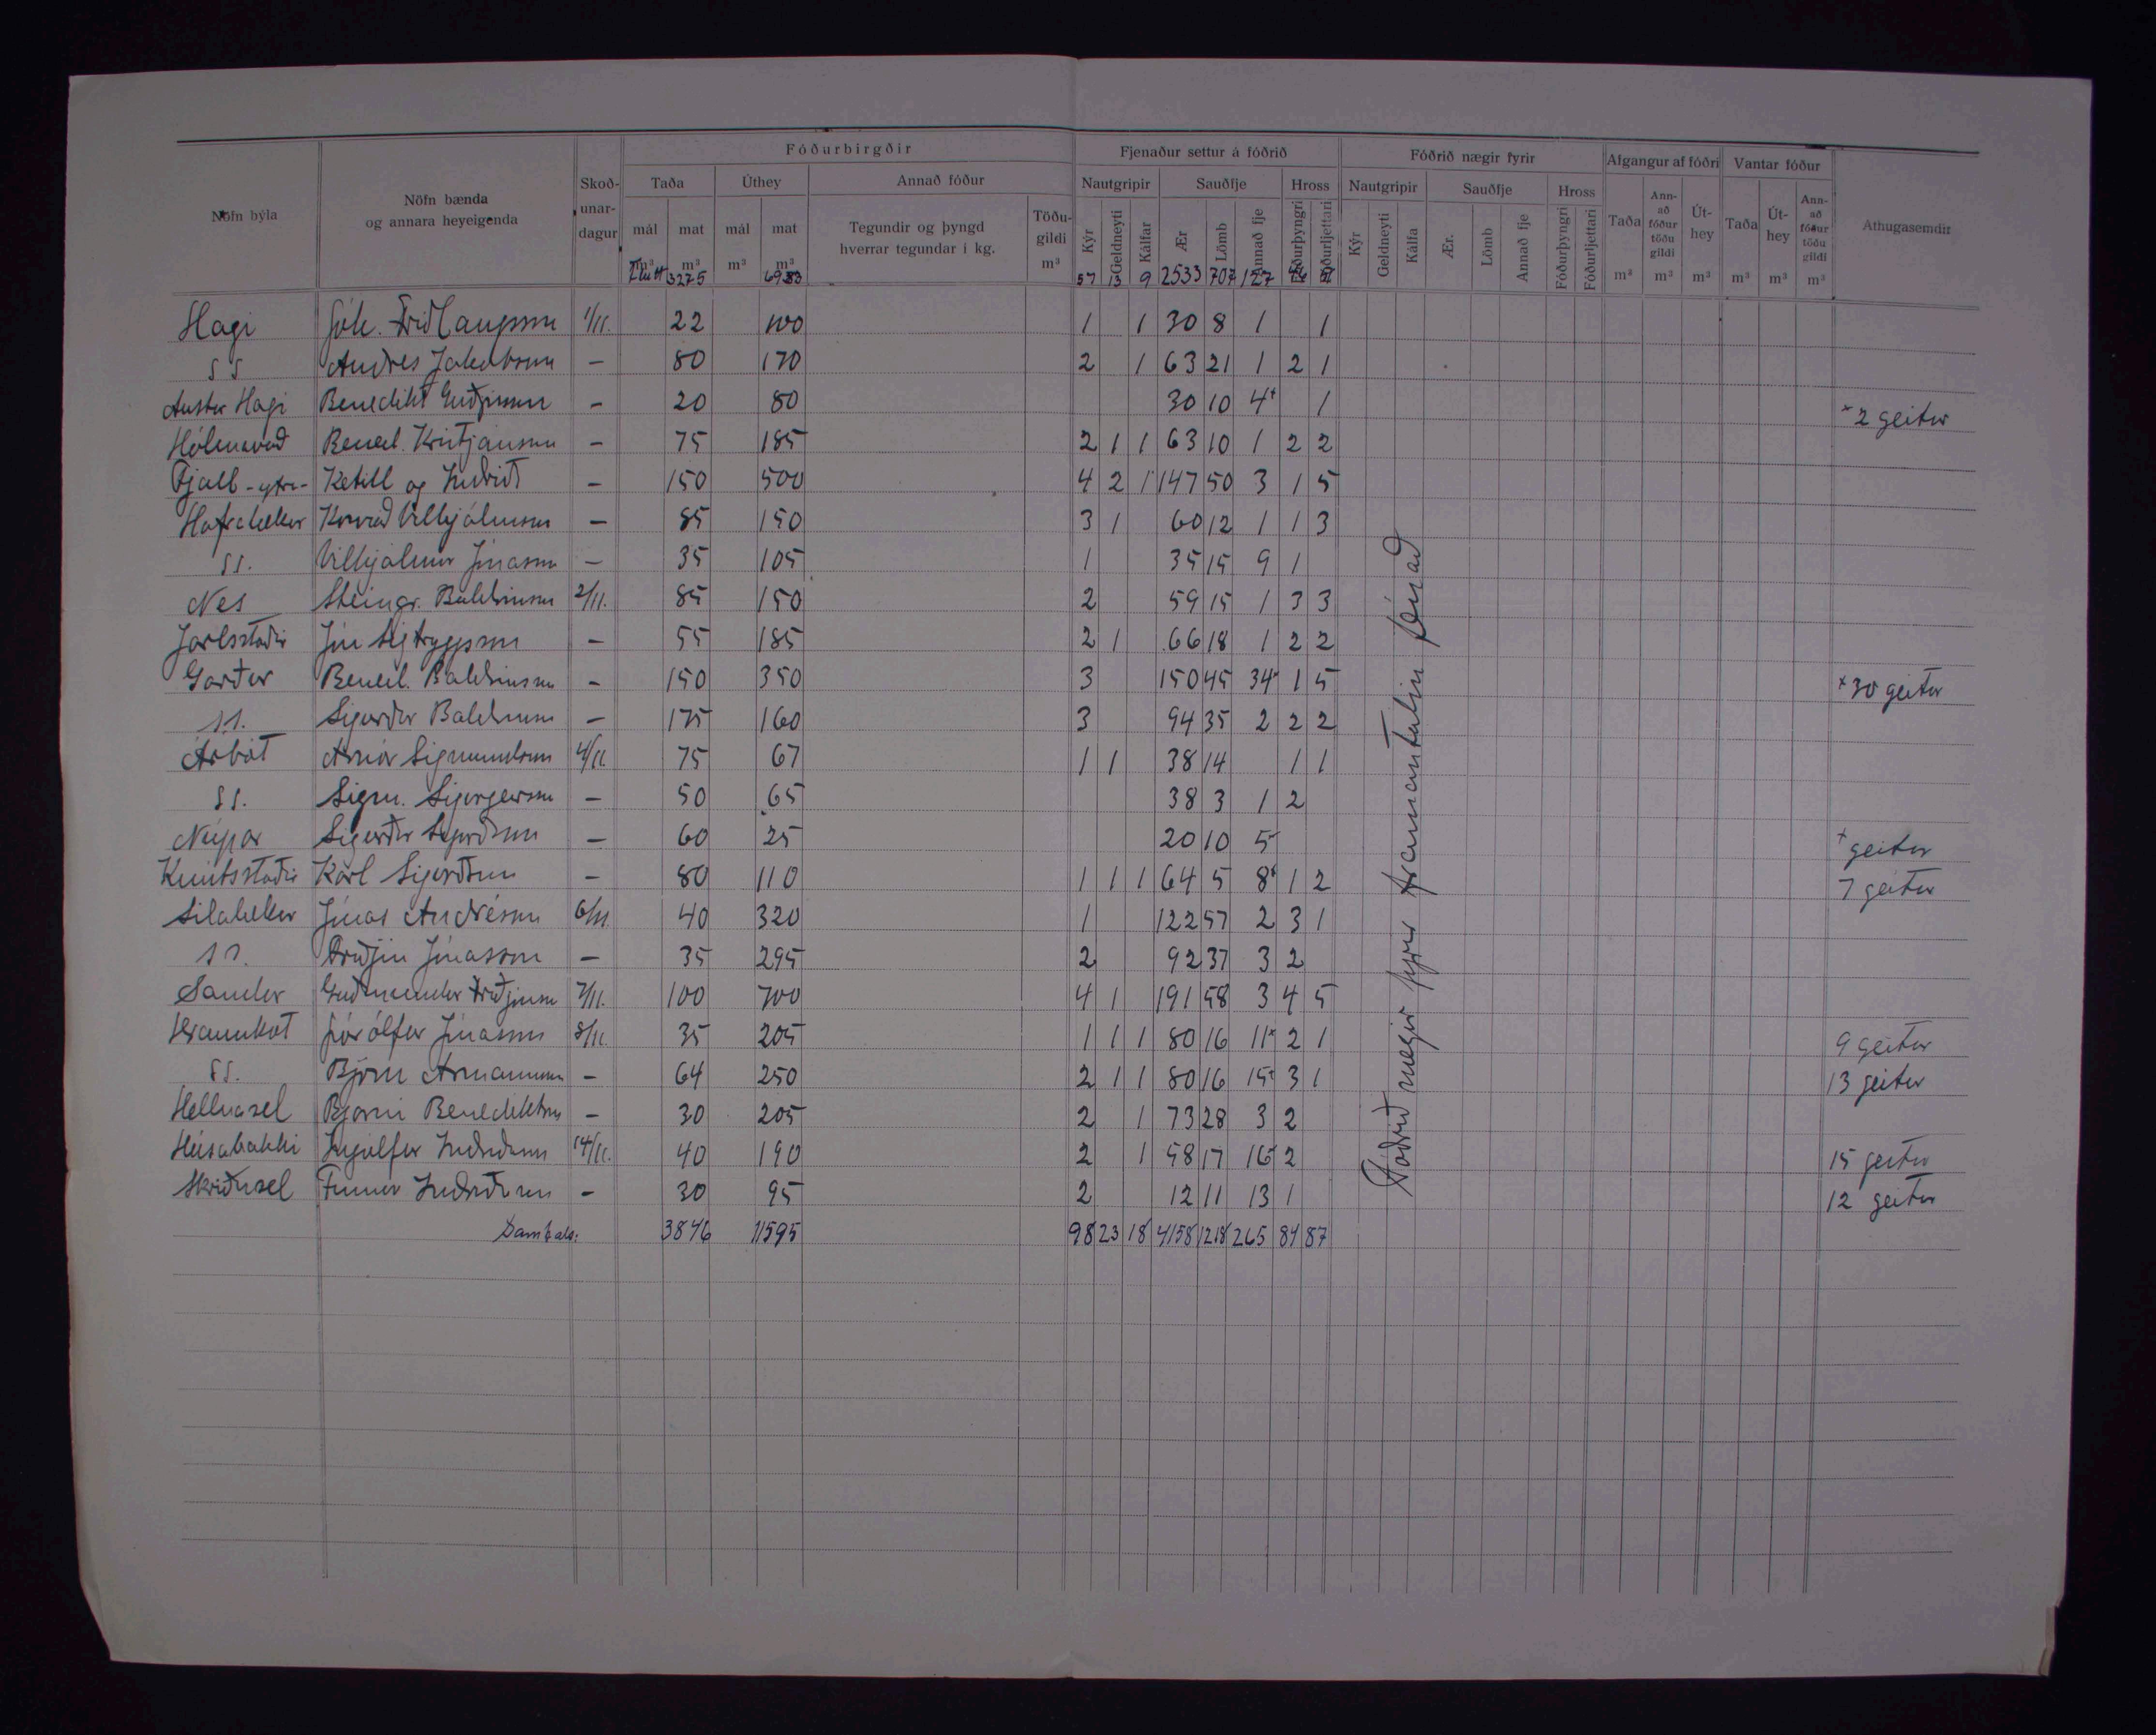 Fóðurbirgðir Fjenaður settur á fóðrið Fóðrið nægir fyrir Afgangur af fóðri Vantar fóður
Nöfn býla Nöfn bænda og annara heyeigenda Skoðunardagur Taða Úthey Annað fóður Nautgripir Sauðfje Hross Nautgripir Sauðfje Hross Taða Annað fóður töðu gildi Úthey Taða Úthey Annað fóður töðu gildi Athugasemdir
mál mat mál mat Tegundir og þyngd hverrar tegundar í kg. Töðugildi Kýr Geldneyti Kálfar Ær Lömb Annað fje Fóðurþyngri Fóðurljettari Kýr Geldneyti Kálfa Ær. Lömb Annað fje Fóðurþyngri Fóðurljettari
m³ m³ m³ m³ m³ m³ m³ m³ m³ m³ m³
Flutt 3275 6983 57 13 9 2533 707 127
Hagi Jóh. Friðlaugsson 1/11. 22 100 1 1 30 8 1 1
SS Andres Jakobsson — 80 170 2 1 63 21 1 2 1
Austur Hagi Benedikt Guðjónsson — 20 80 30 10 4+ 1 × 2 geitur
Hólmavað Bened. Kristjánsson — 75 185 2 1 1 63 10 1 2 2
Fjall - ytra- Ketill og Indriði — 150 500 4 2 1 147 50 3 1 5
Hafralækur Konráð Vilhjálmsson — 85 150 3 1 60 12 1 1 3
SS. Vilhjálmur Jónasson — 35 105 1 35 15 9 1
Nes Steingr. Baldvinsson 2/11. 85 150 2 59 15 1 3 3
Jarlsstaðir Jón Sigtryggsson — 55 185 2 1 66 18 1 2 2
Garður Bened. Baldvinsson — 150 350 3 150 45 34× 1 5 × 30 geitur
SS. Sigurður Baldvinsson — 175 160 3 94 35 2 2 2
Árbót Arnór Sigmundsson 4/11. 75 67 1 1 38 14 1 1
SS. Sigm. Sigurgeirsson — 50 65 38 3 1 2
Núpar Sigurður Sigurðsson — 60 25 20 10 5 + geitur
Knútsstaðir Karl Sigurðsson — 80 110 1 1 1 64 5 8× 1 2 7 geitur
Sílalækur Jónas Andrésson 6/11 40 320 1 122 57 2 3 1
SS. Friðjón Jónasson — 35 295 2 92 37 3 2
Sandur Guðmundur Friðjónsson 7/11. 100 700 4 1 191 58 3 4 5
Hraunkot Þórólfur Jónasson 8/11. 35 205 1 1 1 80 16 11× 2 1 9 geitur
SS. Björn Armannsson — 64 250 2 1 1 80 16 15× 3 1 13 geitur
Hellnasel Bjarni Benediktsson — 30 205 2 1 73 28 3 2
Húsabakki Ingólfur Indriðason 14/11. 40 190 2 1 58 17 16 2 15 geitur
Skriðusel Finnur Indriðason — 30 95 2 12 11 13 1 12 geitur
Samtals: 3846 11595 98 23 18 4158 1218 265 84 87
Fóðrið nægir fyrir framantalin fénað